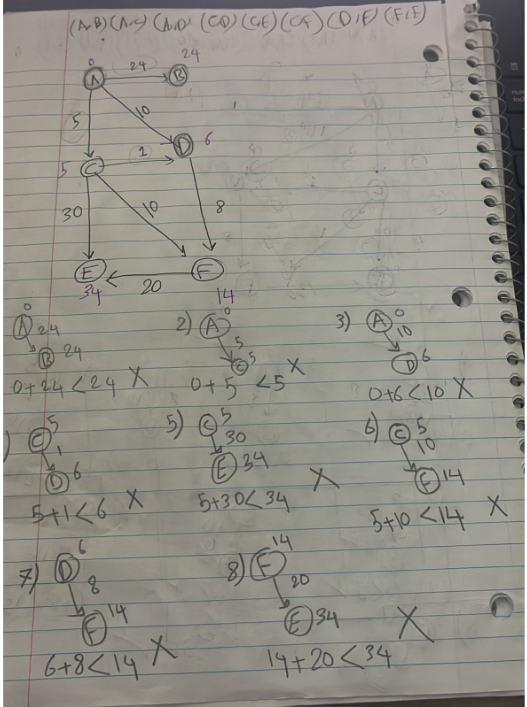 (A,B) (A,C) (A,D) (C,D) (C,E) (C,F) (D,F) (F,E)
0 24 24
A B
5 10
5 C 1 D 6
30 10 8
E 20 F
34 14
0
A 24
B 24
0+24<24 X
2) A 0
5
C 5
0+5<5 X
3) A 0
10
D 6
0+6<10 X
) C 5
1
D 6
5+1<6 X
5) C 5
30
E 34
5+30<34 X
6) C 5
10
F 14
5+10<14 X
7) D 6
8
F 14
6+8<14 X
8) F 14
20
E 34
14+20<34 X